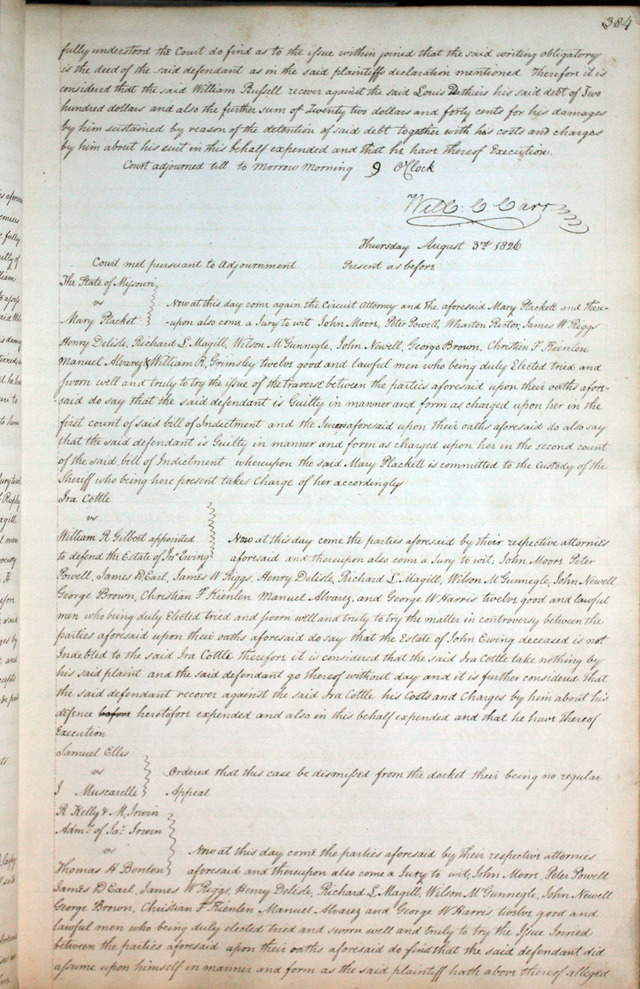 384
fully understood the Court do find as to the issue within joined that the said writing obligatory
is the deed of the said defendant as in the said plaintiffs declaration mentioned Therefore it is
considered that the said William Russell recover against the said Louis his said debt of Two
hundred dollars and also the further sum of Twenty two dollars and forty cents for his damages
by him sustained by reason of the detention of said debt together with his costs and charges
by him about his suit in this behalf expended and that he have thereof Execution.
Court adjourned till to Morrow Morning 9 OClock
Will: C Carr
Thursday August 3rd 1826
Court met persuant to Adjournment Present as before
The State of Missouri
vs
Mary Placket
Now at this day come again the Circuit Attorney and the aforesaid Mary Plackett and there-
-upon also come a Jury to wit John Moors, Peter Powell, Wharton Rector, James W Riggs
Henry Delisle, Richard L. Magill, Wilson McGunnegle, John Newell, George Brown, Christin F. Kienlen
Manuel Alvarez & William R, Grimsley twelve good and lawful men who being duly Elected tried and
sworn well and truly to try the issue of the traverse between the parties aforesaid upon their oaths afore-
said do say that the said defendant is Guilty in manner and form as charged upon her in the
first count of said bill of Indictment and the Jurors aforesaid upon their oaths aforesaid do also say
that the said defendant is Guilty in manner and form as charged upon her in the second count
of the said bill of Indictment whereupon the said Mary Plackett is committed to the Custody of the
Sheriff who being here present takes Charge of her accordingly
Ira Cottle
vs
William R Gilbert appointed
to defend the Estate of Jno Ewing
Now at this day come the parties aforesaid by their respective attornies
aforesaid and thereupon also come a Jury to wit, John Moors Peter
Powell, James D Earl, James W Riggs, Henry Delisle, Richard L. Magill, Wilson McGunnegle, John Newell
George Brown, Christian F. Kienlen Manuel Alvarez, and George W Harris twelve good and lawful
men who being duly Elected tried and sworn well and truly to try the matter in controversy between the
parties aforesaid upon their oaths aforesaid do say that the Estate of John Ewing deceased is not
Indebted to the said Ira Cottle therefore it is considered that the said Ira Cottle take nothing by
his said plaint and the said defendant go thereof without day and it is further considered that
the said defendant recover against the said Ira Cottle his Costs and Charges by him about his
defence before heretofore expended and also in this behalf expended and that he have thereof
Execution
Samuel Ellis
vs
J Muscarelli
Ordered that this case be dismissed from the docket their being no regular
Appeal
R Kelly & M. Irwin
Admrs of Jas Irwin
vs
Thomas H Benton
Now at this day come the parties aforesaid by their respective attornies
aforesaid and thereupon also come a Jury to wit, John Moors, Peter Powell
James D Earl, James W Riggs, Henry Delisle, Richard L Magill, Wilson McGunnegle, John Newell
George Brown, Christian F Kienlen Manuel Alvarez and George W Harris twelve good and
lawful men who being duly elected tried and sworn well and truly to try the Issue Joined
between the parties aforesaid upon their oaths aforesaid do find that the said defendant did
assume upon himself in manner and form as the said plaintiff hath above thereof alleged